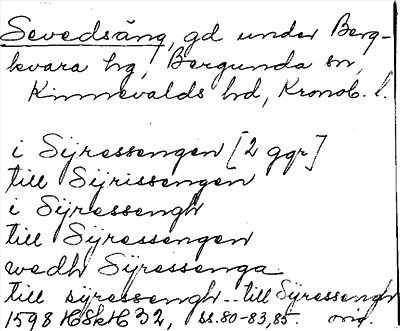 Sevedsäng, gd under Berg-
kvara hg, Bergunda sn,
Kinnevalds hd, Kronob. l.
i Sÿressengen [2 ggr]
till Sÿrissengen
i Sÿressengh
till Sÿressengen
wedh Sÿressenga
till sÿressengh - till Sÿressengh
1598 HSkH 32, ss. 80-83, 85. orig.